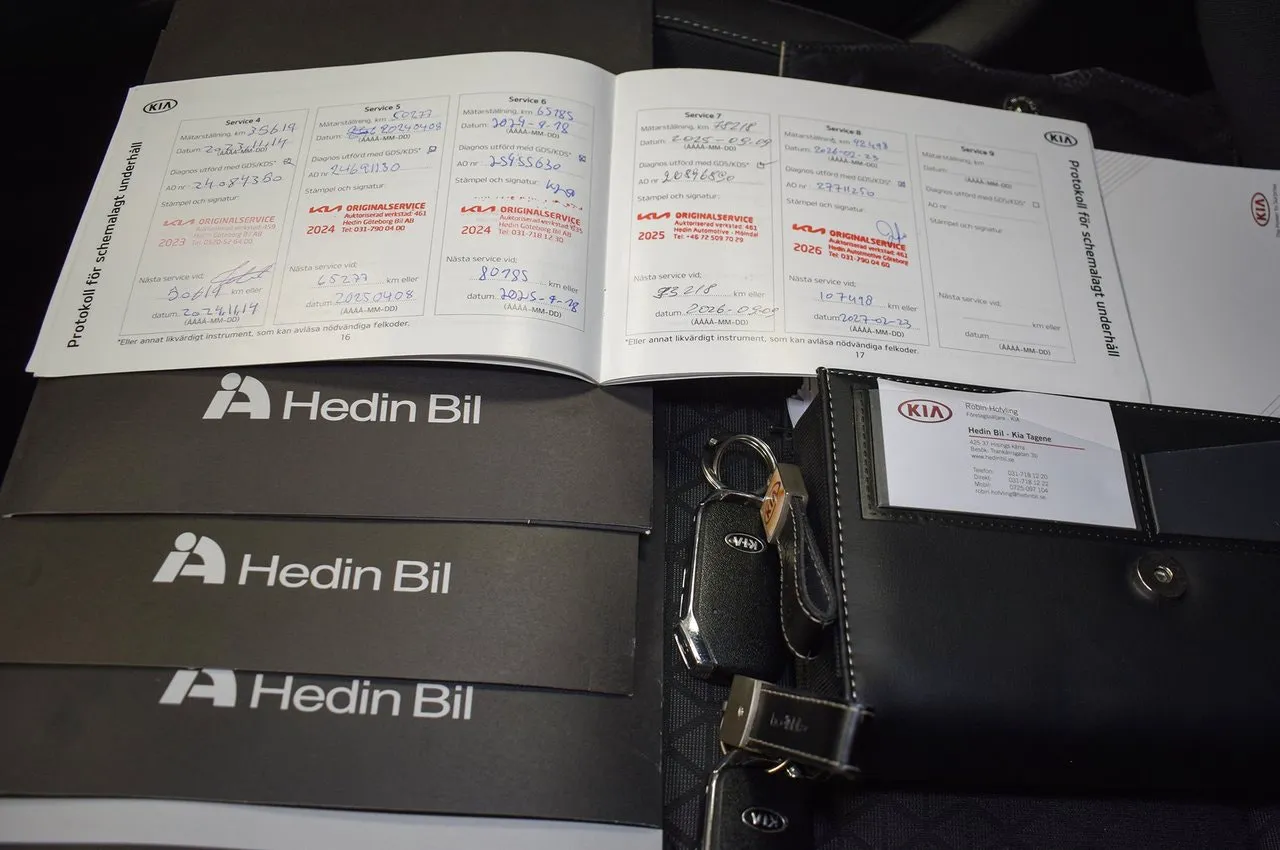 KIA
Protokoll för schemalagt underhåll
Service 4
Mätarställning, km 35619
Datum: 20231114
(ÅÅÅÅ-MM-DD)
Diagnos utförd med GDS/KDS*
AO nr 24084380
Stämpel och signatur:
KIA ORIGINALSERVICE
2023
Nästa service vid:
50619 km eller
datum: 20241114
(ÅÅÅÅ-MM-DD)
Service 5
Mätarställning, km 50277
Datum: 20240408
(ÅÅÅÅ-MM-DD)
Diagnos utförd med GDS/KDS*
AO nr 24691130
Stämpel och signatur:
KIA ORIGINALSERVICE
Auktoriserad verkstad: 461
Hedin Göteborg Bil AB
2024 Tel: 031-790 04 00
Nästa service vid:
65277 km eller
datum: 20250408
(ÅÅÅÅ-MM-DD)
Service 6
Mätarställning, km 65185
Datum: 2024-9-18
(ÅÅÅÅ-MM-DD)
Diagnos utförd med GDS/KDS*
AO nr 25455630
Stämpel och signatur:
KIA ORIGINALSERVICE
Hedin Göteborg Bil AB
2024 Tel: 031-718 12 30
Nästa service vid:
80185 km eller
datum: 2025-9-18
(ÅÅÅÅ-MM-DD)
*Eller annat likvärdigt instrument, som kan avläsa nödvändiga felkoder.
16
Service 7
Mätarställning, km 78218
Datum: 2025-09-09
(ÅÅÅÅ-MM-DD)
Diagnos utförd med GDS/KDS*
AO nr
Stämpel och signatur:
KIA ORIGINALSERVICE
Auktoriserad verkstad: 461
Hedin Automotive - Mölndal
2025 Tel: +46 72 509 70 29
Nästa service vid:
93218 km eller
datum: 2026-09-09
(ÅÅÅÅ-MM-DD)
Service 8
Mätarställning, km 92498
Datum: 2026-02-23
(ÅÅÅÅ-MM-DD)
Diagnos utförd med GDS/KDS*
AO nr 27711250
Stämpel och signatur:
KIA ORIGINALSERVICE
Auktoriserad verkstad: 461
Hedin Automotive Göteborg
2026 Tel: 031-790 04 60
Nästa service vid:
107498 km eller
datum: 2027-02-23
(ÅÅÅÅ-MM-DD)
Service 9
Mätarställning, km
Datum:
(ÅÅÅÅ-MM-DD)
Diagnos utförd med GDS/KDS*
AO nr
Stämpel och signatur:
Nästa service vid:
km eller
datum:
(ÅÅÅÅ-MM-DD)
*Eller annat likvärdigt instrument, som kan avläsa nödvändiga felkoder.
17
KIA
Protokoll för schemalagt underhåll
KIA
Hedin Bil
Hedin Bil
Hedin Bil
KIA
Robin Hofving
Hedin Bil - Kia Tagene
425 37 Hisings Kärra
www.hedinbil.se
Telefon: 031-718 12 20
Direkt: 031-718 12 22
Mobil: 0725-097 104
robin.hofving@hedinbil.se
KIA
KIA
KIA